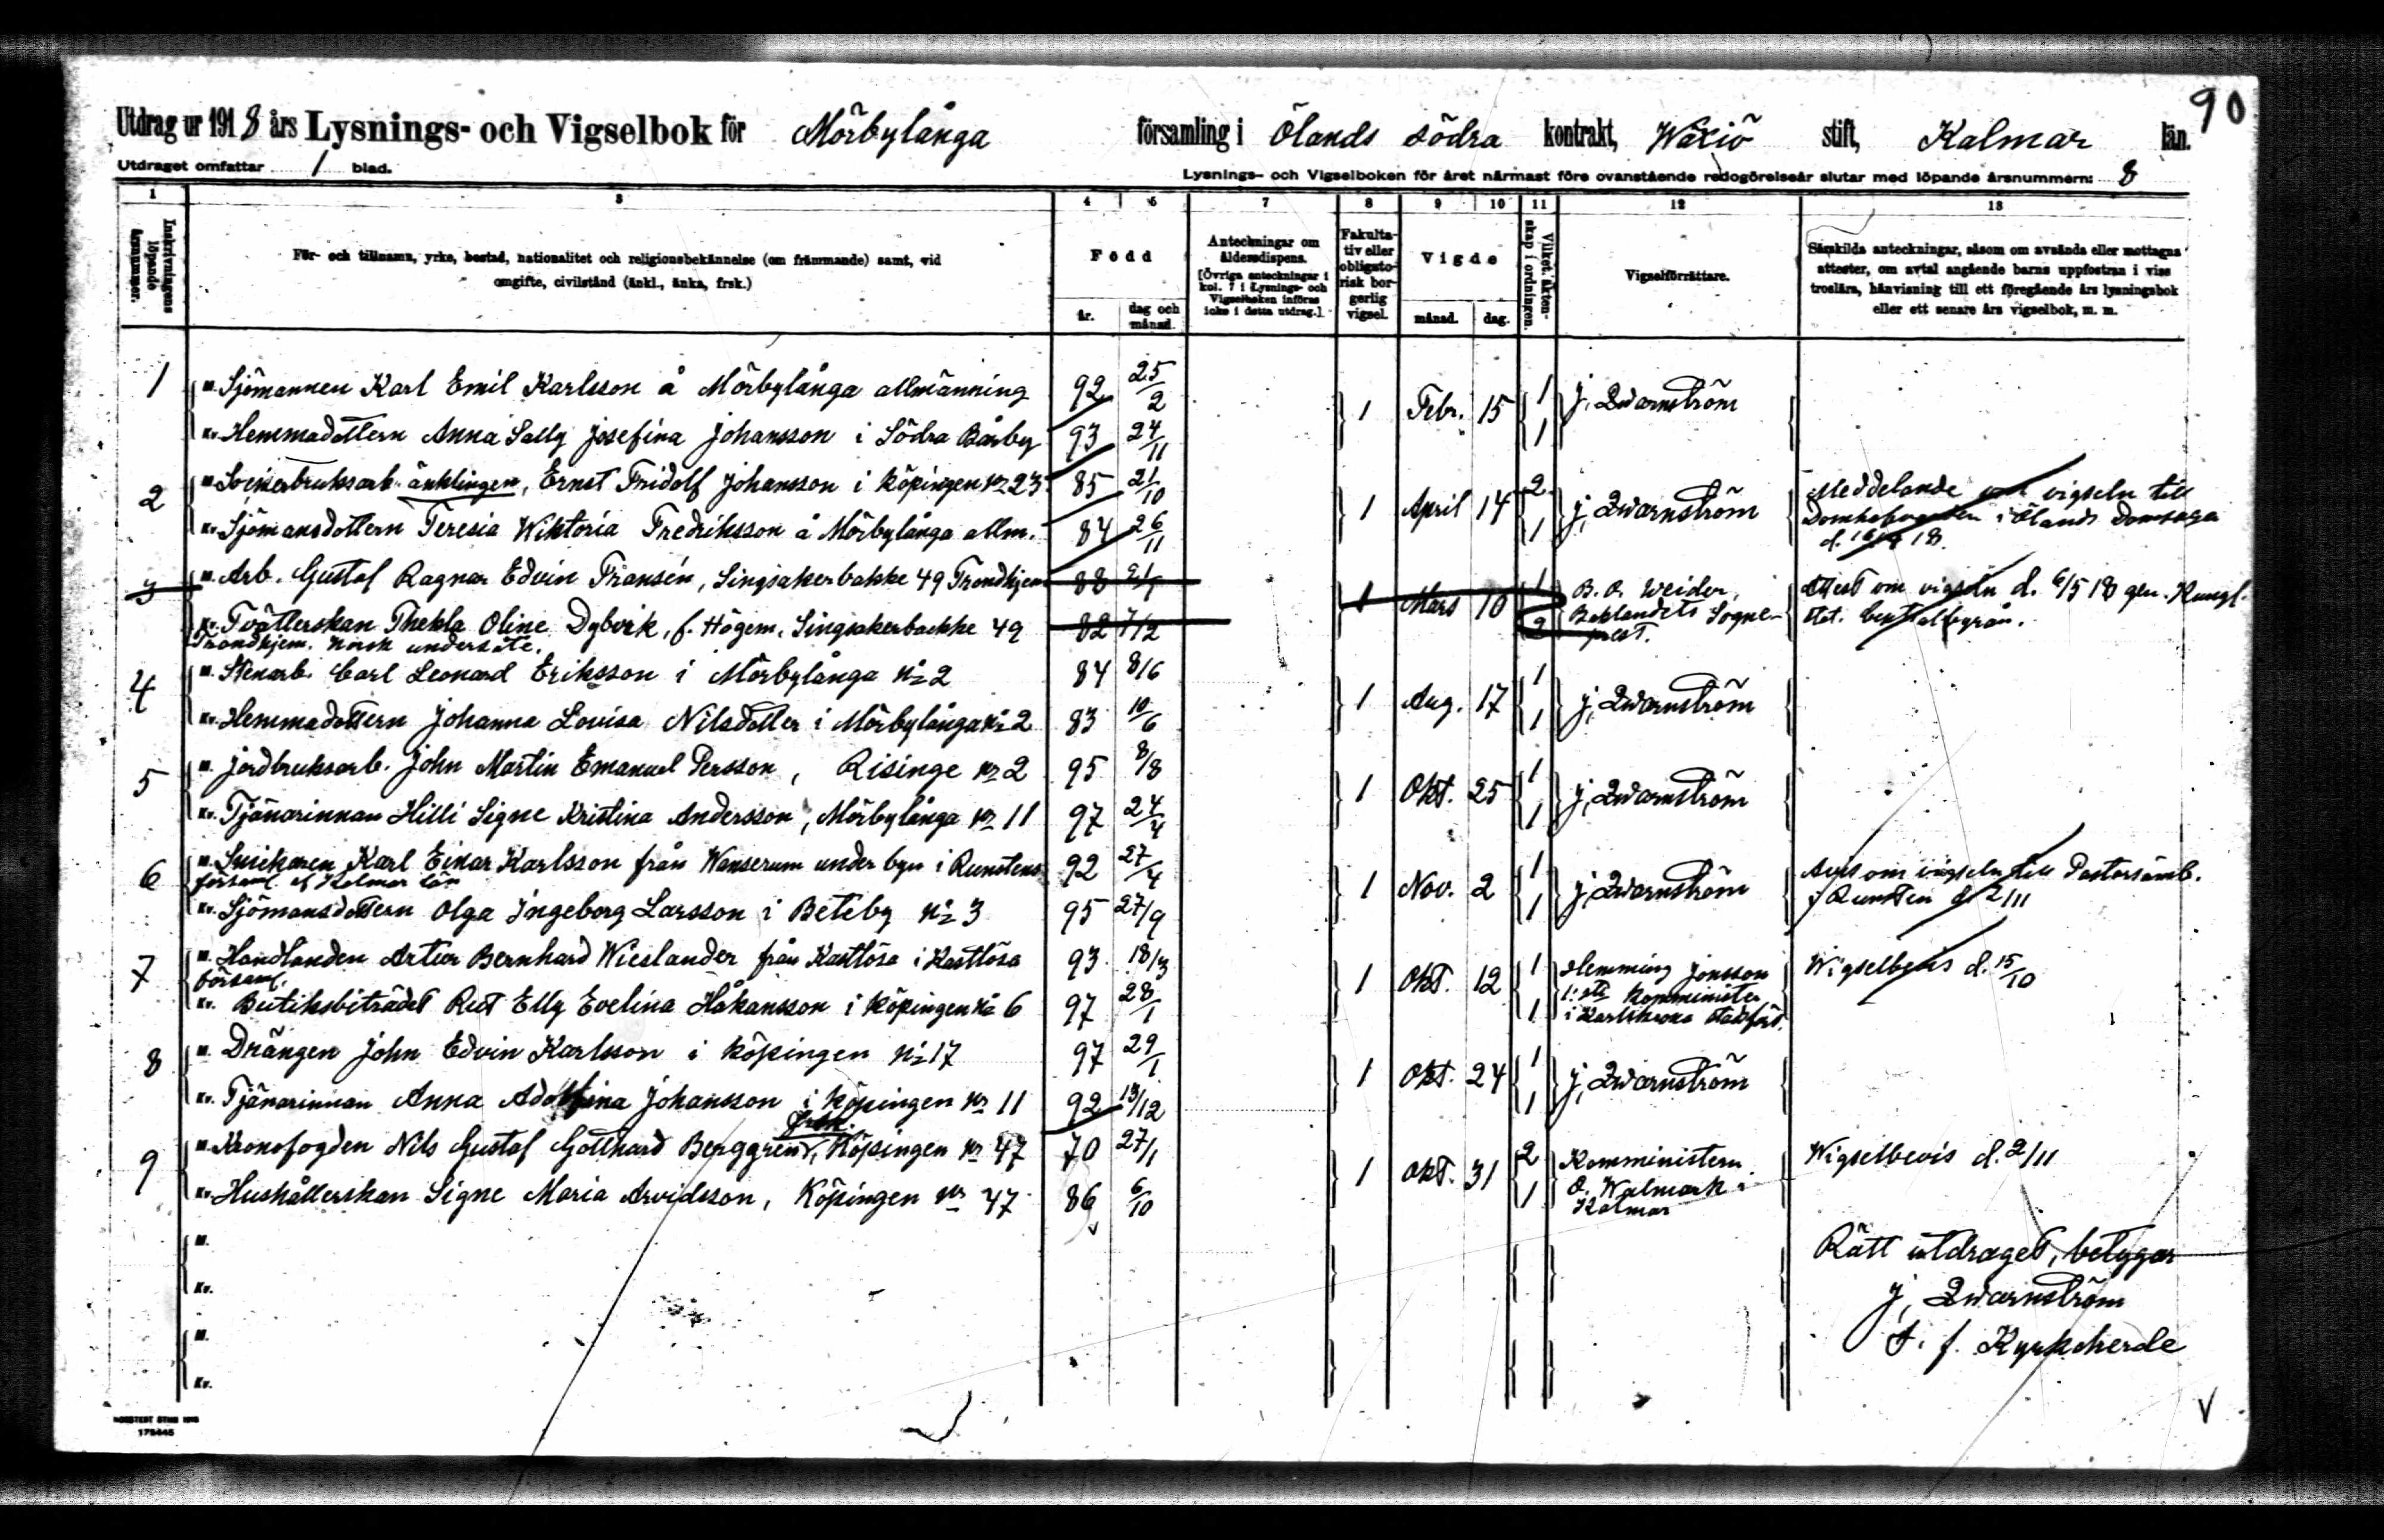 90
Utdrag ur 1918 års Lysnings- och Vigselbok för Mörbylånga församling i Ölands södra kontrakt, Wäxiö stift, Kalmar län.
Utdraget omfattar 1 blad.
Lysnings- och Vigselboken för året närmast före ovanstående redogörelseår slutar med löpande årsnummern: 8
1 3 4 5 7 8 9 10 11 12 13
Inskrivningens löpande årsnummer.
För- och tillnamn, yrke, bostad, nationalitet och religionsbekännelse (om främmande) samt, vid
omgifte, civilstånd (änkl., änka, frsk.)
Född
år.
dag och månad.
Anteckningar om
åldersdispens.
[Övriga anteckningar i
kol. 7 i Lysnings- och
Vigselboken införas
icke i detta utdrag.]
Fakulta-
tiv eller
obligato-
risk bor-
gerlig
vigsel.
Vigde
månad.
dag.
Vilket äkten-
skap i ordningen.
Vigselförrättare.
Särskilda anteckningar, såsom om avsända eller mottagna
attester, om avtal angående barns uppfostran i viss
troslära, hänvisning till ett föregående års lysningsbok
eller ett senare års vigselbok, m. m.
1 M. Sjömannen Karl Emil Karlsson å Mörbylånga allmänning 92 25/2 1 Febr. 15 1 J. Qvarnström
Kv. Hemmadottern Anna Sally Josefina Johansson i Södra Bårby 93 24/11 1
2 M. Sockerbruksarb. änklingen, Ernst Fridolf Johansson i Köpingen No 23 85 21/10 1 April 14 2 J. Qvarnström Meddelande om vigseln till
Kv. Sjömansdottern Teresia Wiktoria Fredriksson å Mörbylånga allm. 84 26/11 1 Domhafvanden i Ölands Domsaga
3 M. Arb. Gustaf Ragnar Edvin Fransén, Singsakerbakke 49 Trondhjem 88 1 Mars 10 1 B. O. Weider, Attest om vigseln d. 6/5 18 gen. Kungl.
Kv. Tvätterskan Thekla Oline Dybvik, f. Högem, Singsakerbackke 49 82 7/2 2 Baklandets Sogne- Stat. Centralbyrån.
Trondhjem. Norsk undersåte. prest.
4 M. Stenarb. Carl Leonard Eriksson i Mörbylånga No 2 84 8/6 1 Aug. 17 1 J. Qvarnström
Kv. Hemmadottern Johanna Lovisa Nilsdotter i Mörbylånga No 2 83 10/6 1
5 M. Jordbruksarb. John Martin Emanuel Persson, Risinge No 2 95 8/8 1 Okt. 25 1 J. Qvarnström
Kv. Tjänarinnan Hilli Signe Kristina Andersson, Mörbylånga No 11 97 24/4 1
6 M. Snickaren Karl Einar Karlsson från Wanserum under byn i Runstens 92 27/4 1 Nov. 2 1 J. Qvarnström Avis om vigseln till Pastorsämb.
församl. af Kalmar län i Runsten d. 2/11
Kv. Sjömansdottern Olga Ingeborg Larsson i Beteby No 3 95 27/9 1
7 M. Handlanden Artur Bernhard Wieslander från Kastlösa i Kastlösa 93 18/3 1 Okt. 12 1 Hemming Jonsson Wigselbevis d. 15/10
församl. 1:ste Komminister
Kv. Butiksbiträdet Rut Elly Evelina Håkansson i Köpingen No 6 97 28/1 1 i Karlskrona stadsförs.
8 M. Drängen John Edvin Karlsson i Köpingen No 17 97 29/1 1 Okt. 24 1 J. Qvarnström
Kv. Tjänarinnan Anna Adolfina Johansson i Köpingen No 11 92 13/12 1
frsk.
9 M. Kronofogden Nils Gustaf Gotthard Berggren, Köpingen No 47 70 27/1 1 Okt. 31 2 Komministern Wigselbevis d. 2/11
Kv. Hushållerskan Signe Maria Arvidsson, Köpingen No 47 86 6/10 1 O. Walmark i
Kalmar
M.
Kv.
M.
Kv.
Rätt utdraget, betygar
J. Qvarnström
t. f. Kyrkoherde
NORSTEDT STHM 1918
175445